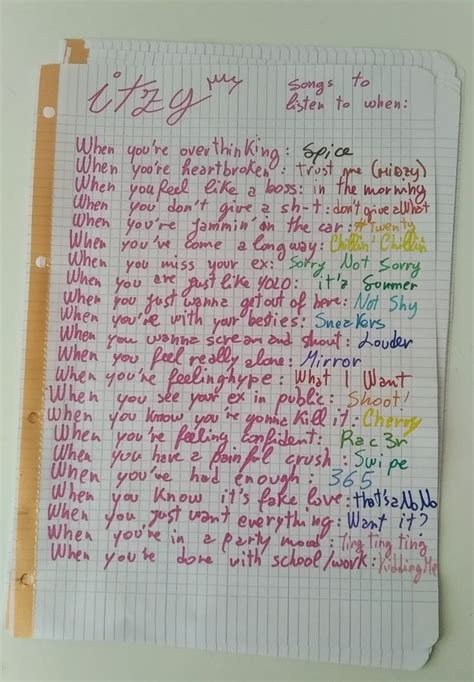 itzy
songs to
listen to when:
When you're overthinking: Spice
When you're heartbroken: trust me (MIDZY)
When you feel like a boss: in the morning
When you don't give a sh-t: don't give a What
When you're jammin' in the car: #Twenty
When you've come a long way: Chillin' Chillin
When you miss your ex: Sorry Not Sorry
When you are just like YOLO: it'z Summer
When you just wanna get out of here: Not Shy
When you're with your besties: Sneakers
When you wanna scream and shout: Louder
When you feel really alone: Mirror
When you're feeling hype: What I Want
When you see your ex in public: Shoot!
When you know you're gonna kill it: Cherry
When you're feeling confident: Rac3r
When you have a painful crush: Swipe
When you've had enough: 365
When you know it's fake love: that's a NoNo
When you just want everything: Want it?
When you're in a party mood: Ting ting ting
When you're done with school/work: